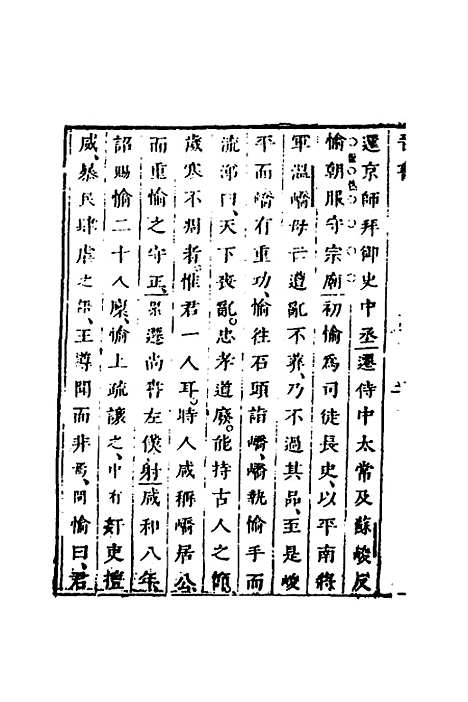 還京師拜御史中丞遷侍中太常及蘇峻反
愉朝服守宗廟初愉為司徒長史以平南將
軍溫嶠母亡遭亂不葬、乃不過其品、至是峻
平而嶠有重功、愉往石頭詣嶠、嶠執愉手而
流涕曰、天下喪亂。忠孝道廢。能持古人之節、
歲寒不凋者、惟君一人耳。時人咸稱嶠居公
而重愉之守正、累遷尚書左僕射咸和八年、
詔賜愉二十人廩、愉上疏讓之、中有奸吏擅
威、暴民肆虐之語、王導聞而非之、問愉曰、君